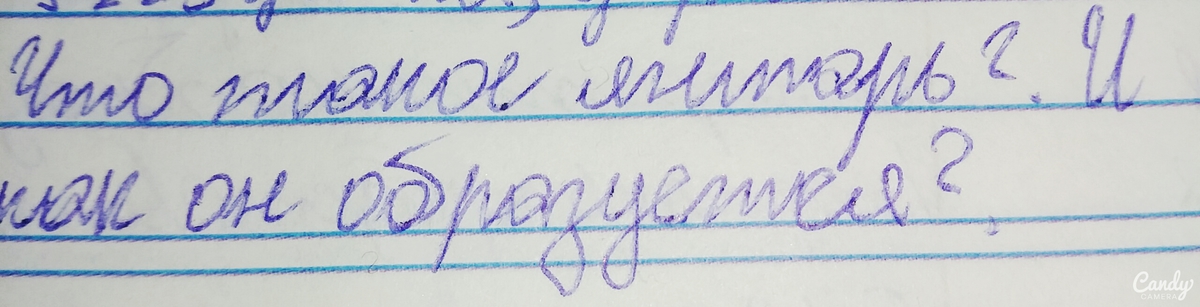 Что такое янтарь?. И
как он образуется?.
Candy
CAMERA